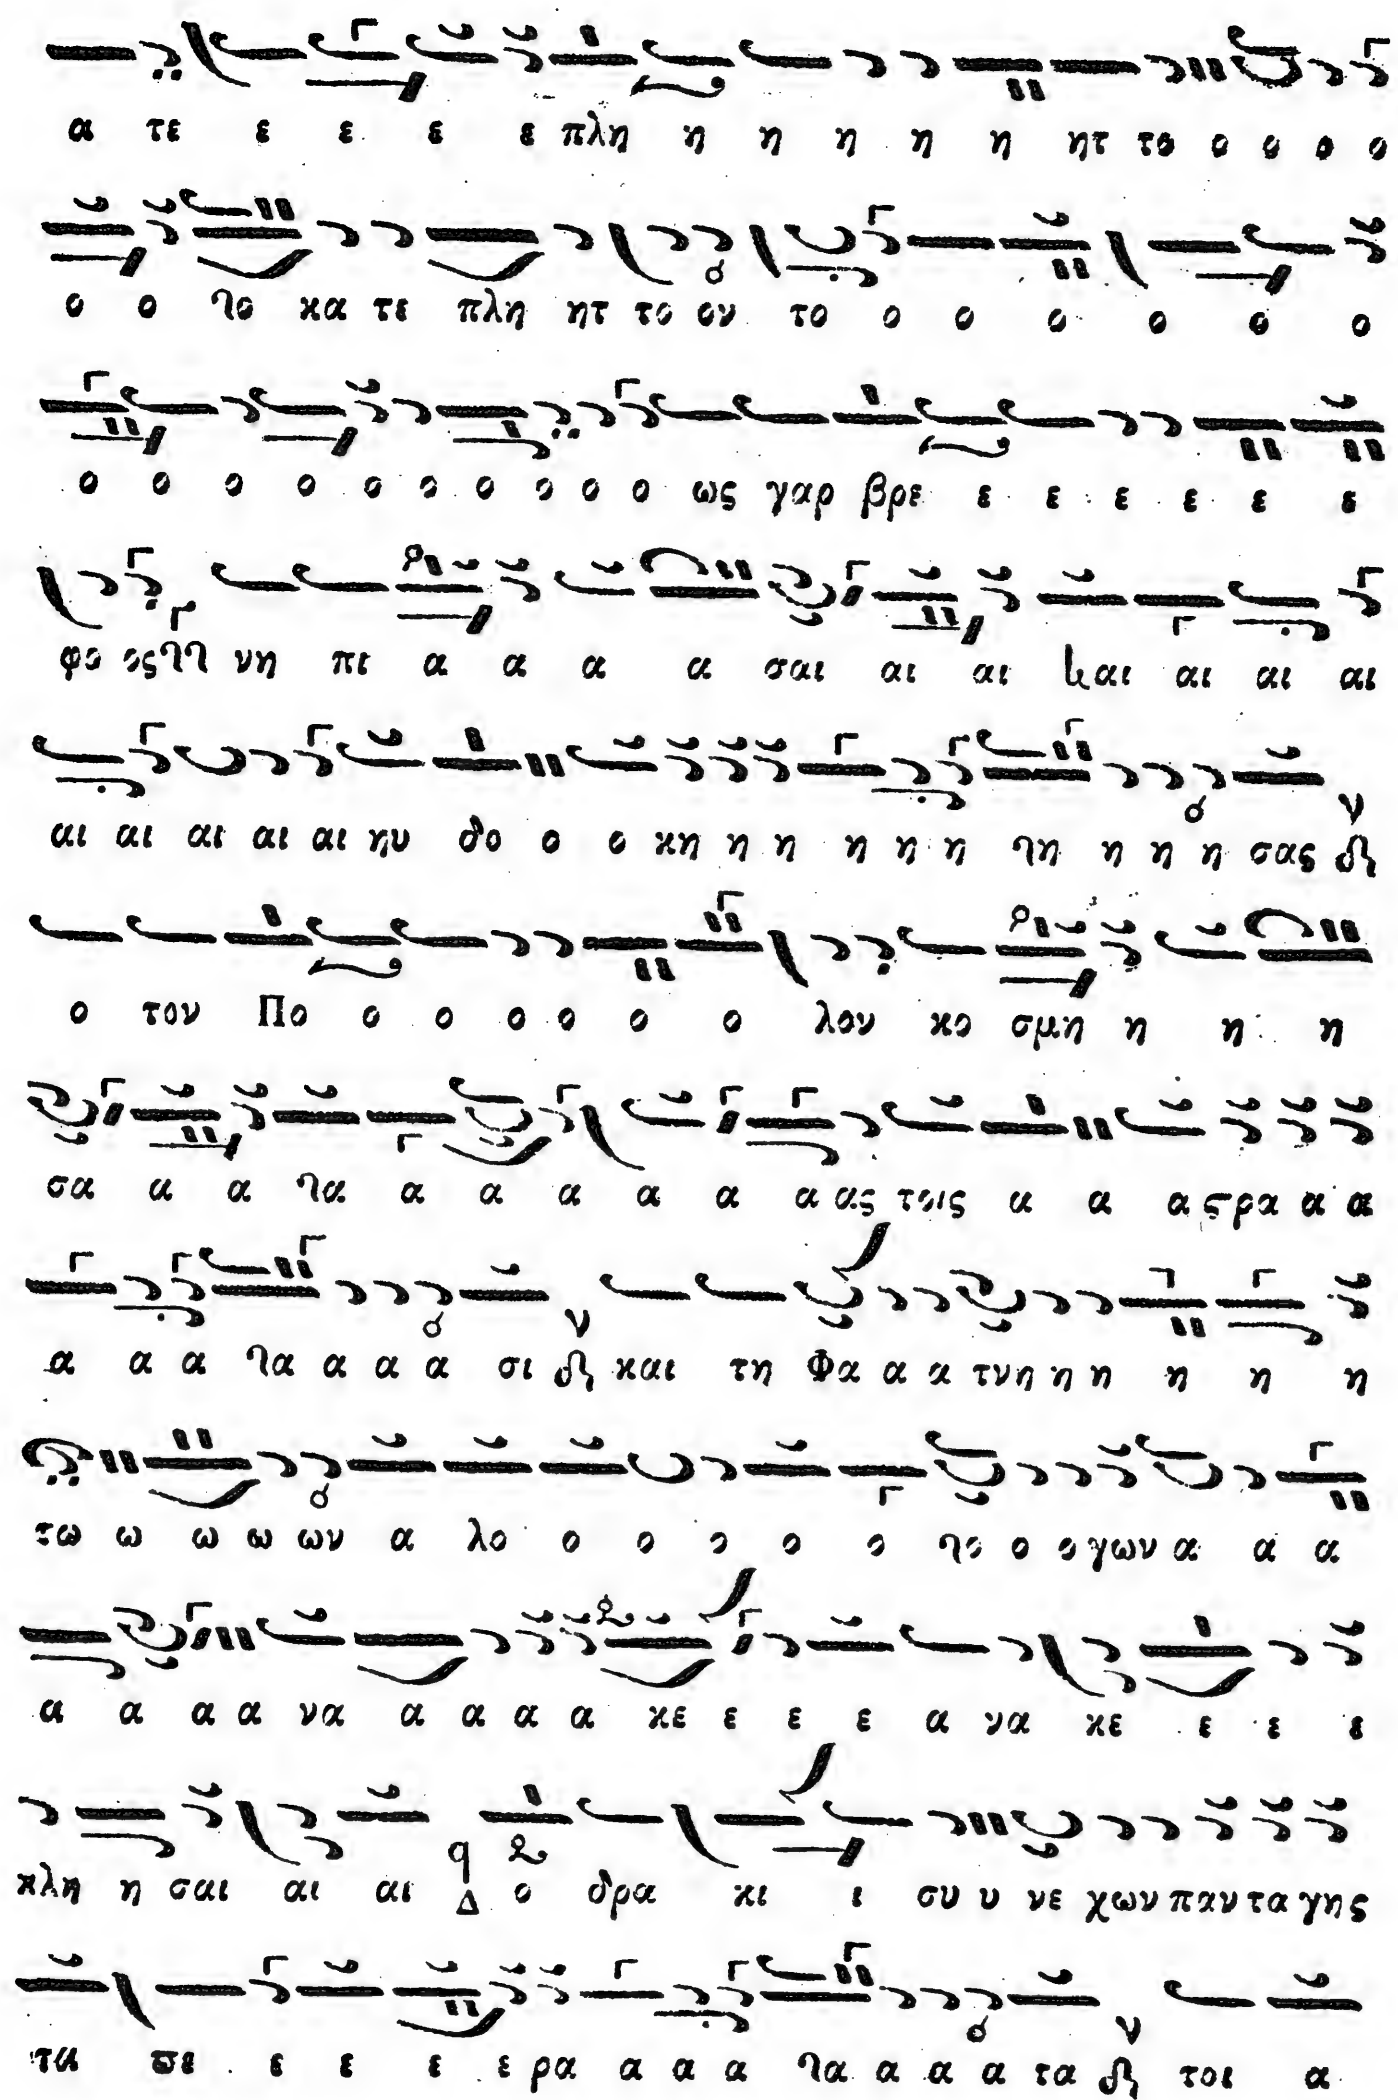 α τε ε ε ε ε πλη η η η η η ητ το ο ο ο ο
ο ο το κα τε πλη ητ το ον το ο ο ο ο ο ο
ο ο ο ο ο ο ο ο ο ο ως γαρ βρε ε ε ε ε ε ε
φο ος νη πι α α α α σαι αι αι αι αι αι αι
αι αι αι αι αι ηυ δο ο ο κη η η η η η τη η η η σας
ο τον Πο ο ο ο ο ο ο λον κο σμη η η η
σα α α τα α α α α α α ας τοις α α αςρα α α
α α α τα α α α σι και τη Φα α α τνη η η η η η
τω ω ω ω ων α λο ο ο ο ο ο το ο ο γων α α α
α α α α να α α α α κε ε ε ε α να κε ε ε ε
κλη η σαι αι αι Δ ο δρα κι ι συ υ νε χων παν τα γης
τα ϖε ε ε ε ε ρα α α α τα α α α τα τοι α